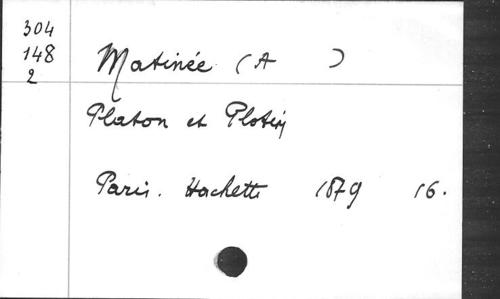 304
148
2
Matinée (A )
Platon et Plotin
Paris. Hachette 1879 16.